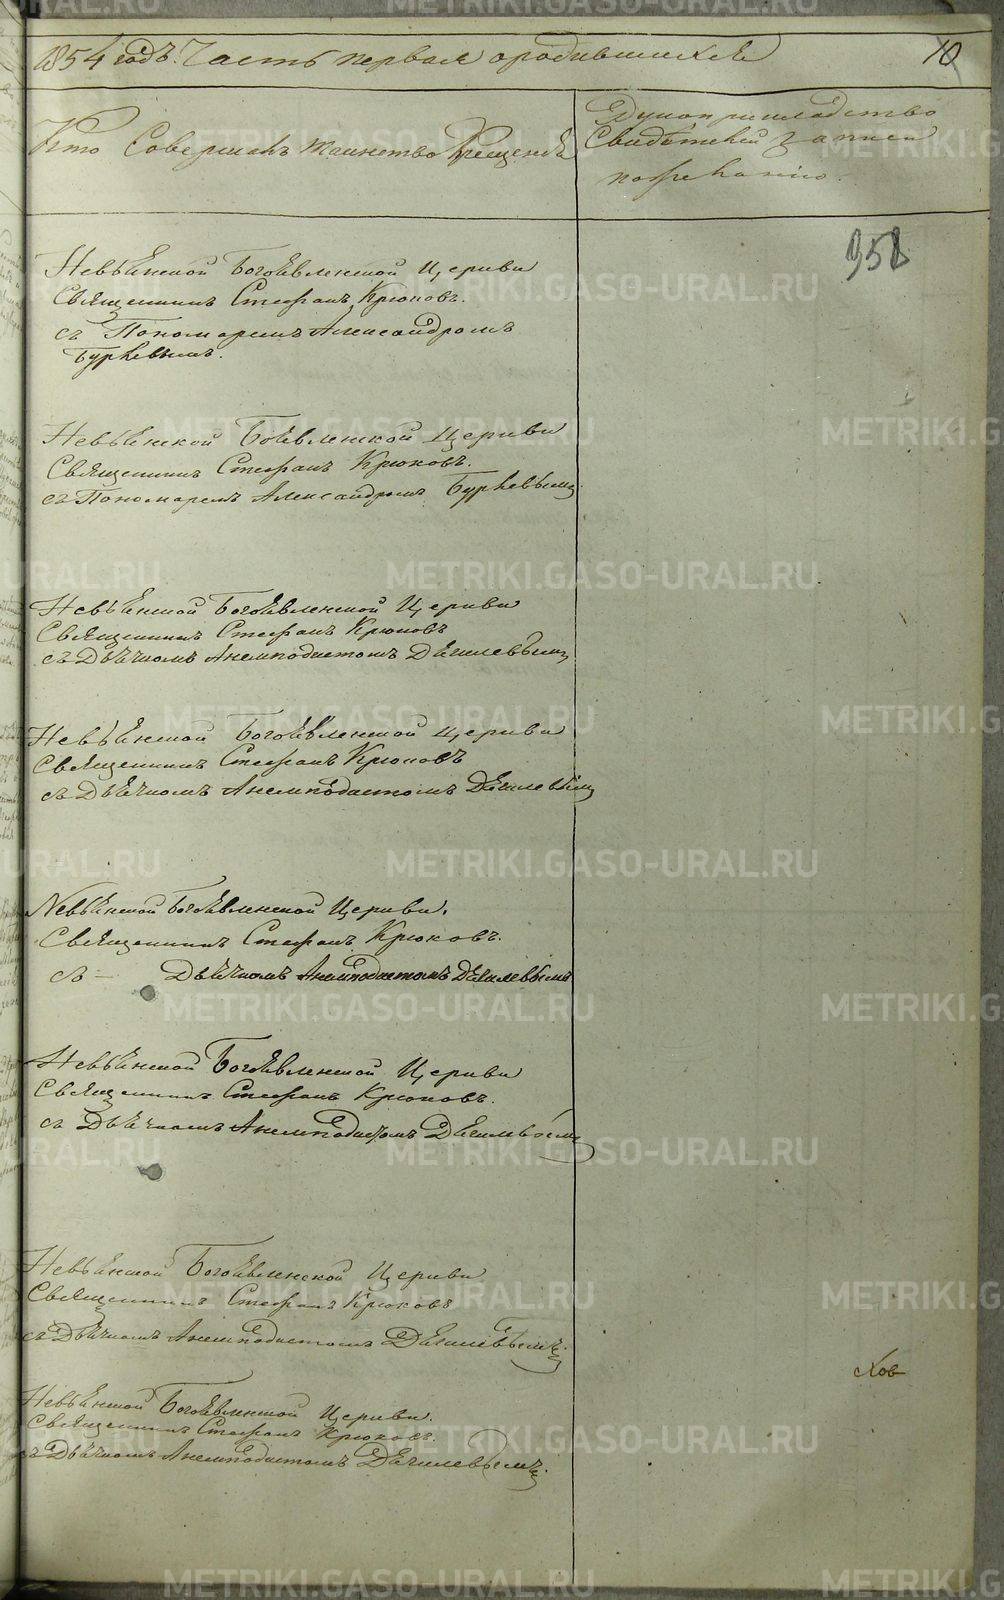 1854 годъ. Часть первая ородившихся
10
Кто Совершалъ таинство Крещенія
Рукоприкладство
Свидѣтелей записи
по желанію.
958
Невьянской Богоявленской Церкви
Священникъ Стефанъ Крюковъ.
съ Пономаремъ Александромъ
Невьянской Богоявленской Церкви
Священникъ Стефанъ Крюковъ.
съ Пономаремъ Александромъ
Невьянской Богоявленской Церкви
Священникъ Стефанъ Крюковъ
съ Дьячкомъ Анемподистомъ
Невьянской Богоявленской Церкви
Священникъ Стефанъ Крюковъ
съ Дьячкомъ Анемподистомъ
Невьянской Богоявленской Церкви.
Священникъ Стефанъ Крюковъ.
съ – Дьячкомъ Анемподистомъ
Невьянской Богоявленской Церкви
Священникъ Стефанъ Крюковъ.
съ Дьячкомъ Анемподистомъ
Невьянской Богоявленской Церкви
Священникъ Стефанъ Крюковъ
съ Дьячкомъ Анемподистомъ
ховъ
Невьянской Богоявленской Церкви.
Священникъ Стефанъ Крюковъ.
съ Дьячкомъ Анемподистомъ
METRIKI.GASO-URAL.RU